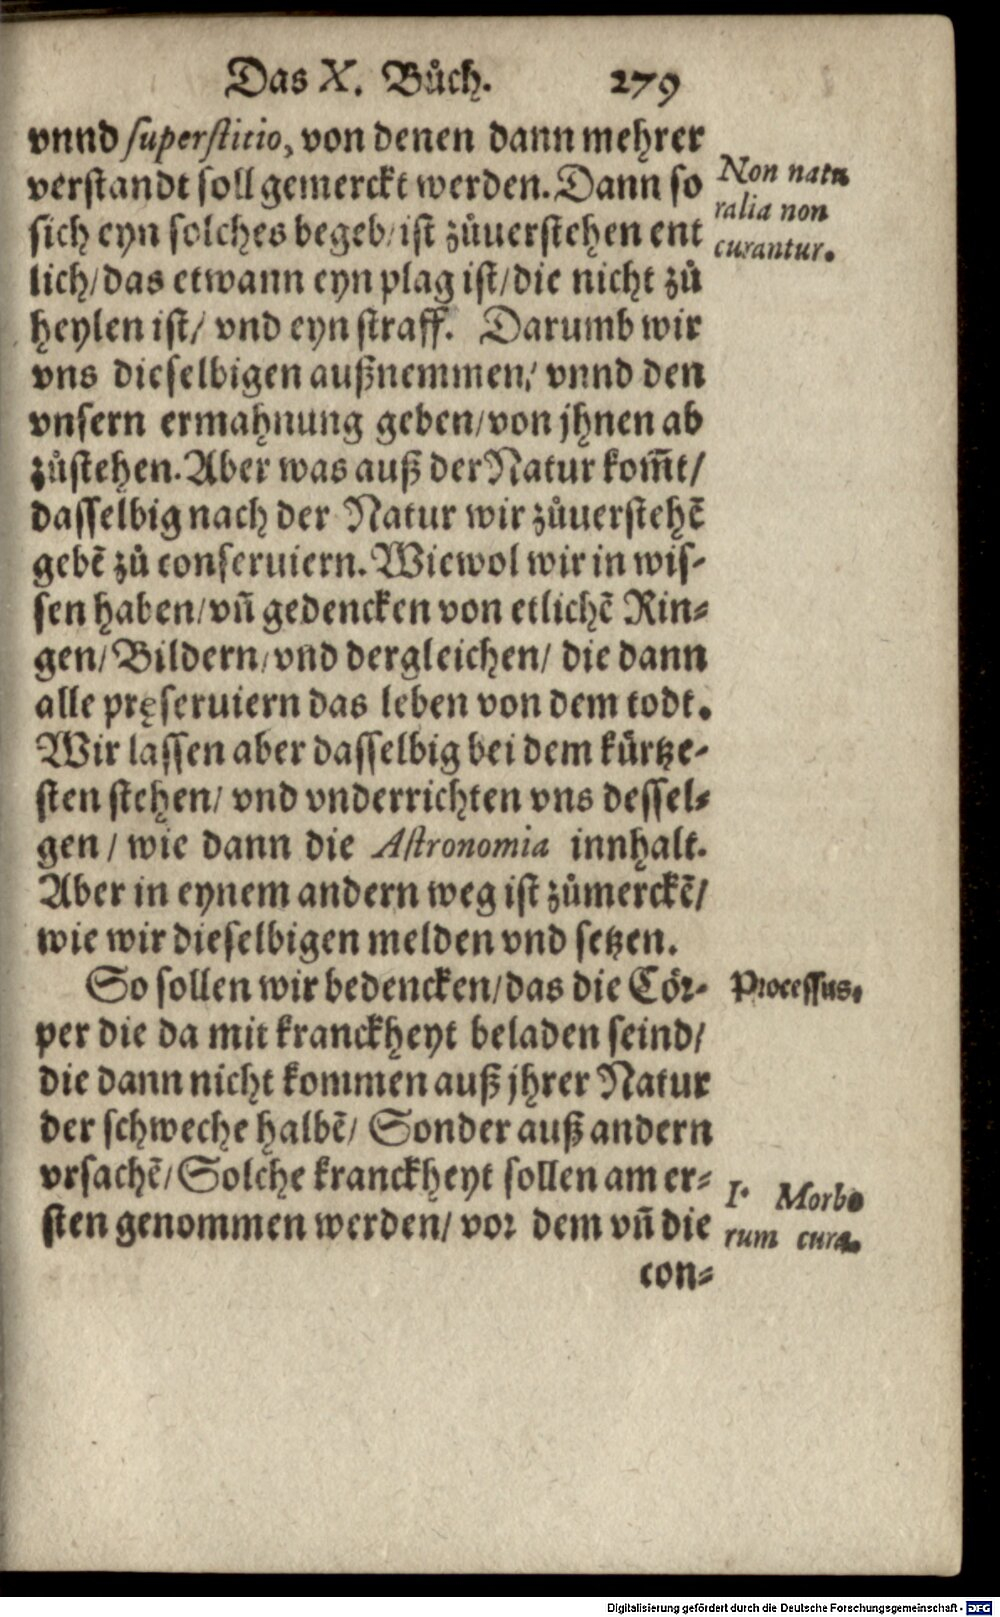 Das X. Bůch. 279
vnnd superstitio, von denen dann mehrer
verstandt soll gemerckt werden. Dann so
sich eyn solches begeb/ ist zůuerstehen ent
lich/ das etwann eyn plag ist/ die nicht zů
heylen ist/ vnd eyn straff. Darumb wir
vns dieselbigen außnemmen/ vnnd den
vnsern ermahnung geben/ von jhnen ab
zůstehen. Aber was auß der Natur kom̃t/
dasselbig nach der Natur wir zůuerstehẽ
gebẽ zů conseruiern. Wiewol wir in wis-
sen haben/ vñ gedencken von etlichẽ Rin-
gen/ Bildern/ vnd dergleichen/ die dann
alle pręseruiern das leben von dem todt.
Wir lassen aber dasselbig bei dem kürtze-
sten stehen/ vnd vnderrichten vns dessel-
gen/ wie dann die Astronomia innhalt.
Aber in eynem andern weg ist zůmerckẽ/
wie wir dieselbigen melden vnd setzen.
So sollen wir bedencken/ das die Cör-
per die da mit kranckheyt beladen seind/
die dann nicht kommen auß jhrer Natur
der schweche halbẽ/ Sonder auß andern
vrsachẽ/ Solche kranckheyt sollen am er-
sten genommen werden/ vor dem vñ die
con-
Non natu
ralia non
curantur.
Processus.
I. Morbo
rum cura.
Digitalisierung gefördert durch die Deutsche Forschungsgemeinschaft - DFG